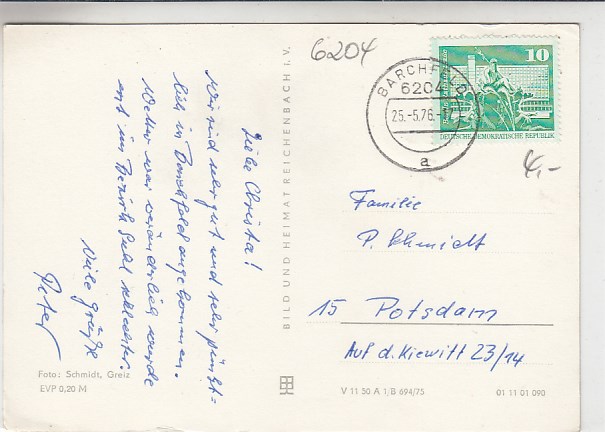 Liebe Christa!
Wir sind sehr gut und sehr pünkt=
lich in Barchfeld angekommen.
Wetter war veränderlich wurde
erst im Bezirk Suhl schlechter.
Viele Grüße
Peter
Foto: Schmidt, Greiz
EVP 0,20 M
BILD UND HEIMAT REICHENBACH I. V.
6204
BARCHFELD
6204
25.-5.76.-17
a
10
DEUTSCHE DEMOKRATISCHE REPUBLIK
4,-
Familie
P. Schmidt
15 Potsdam
Auf d. Kiewitt 23/14
V 11 50 A 1/B 694/75
01 11 01 090